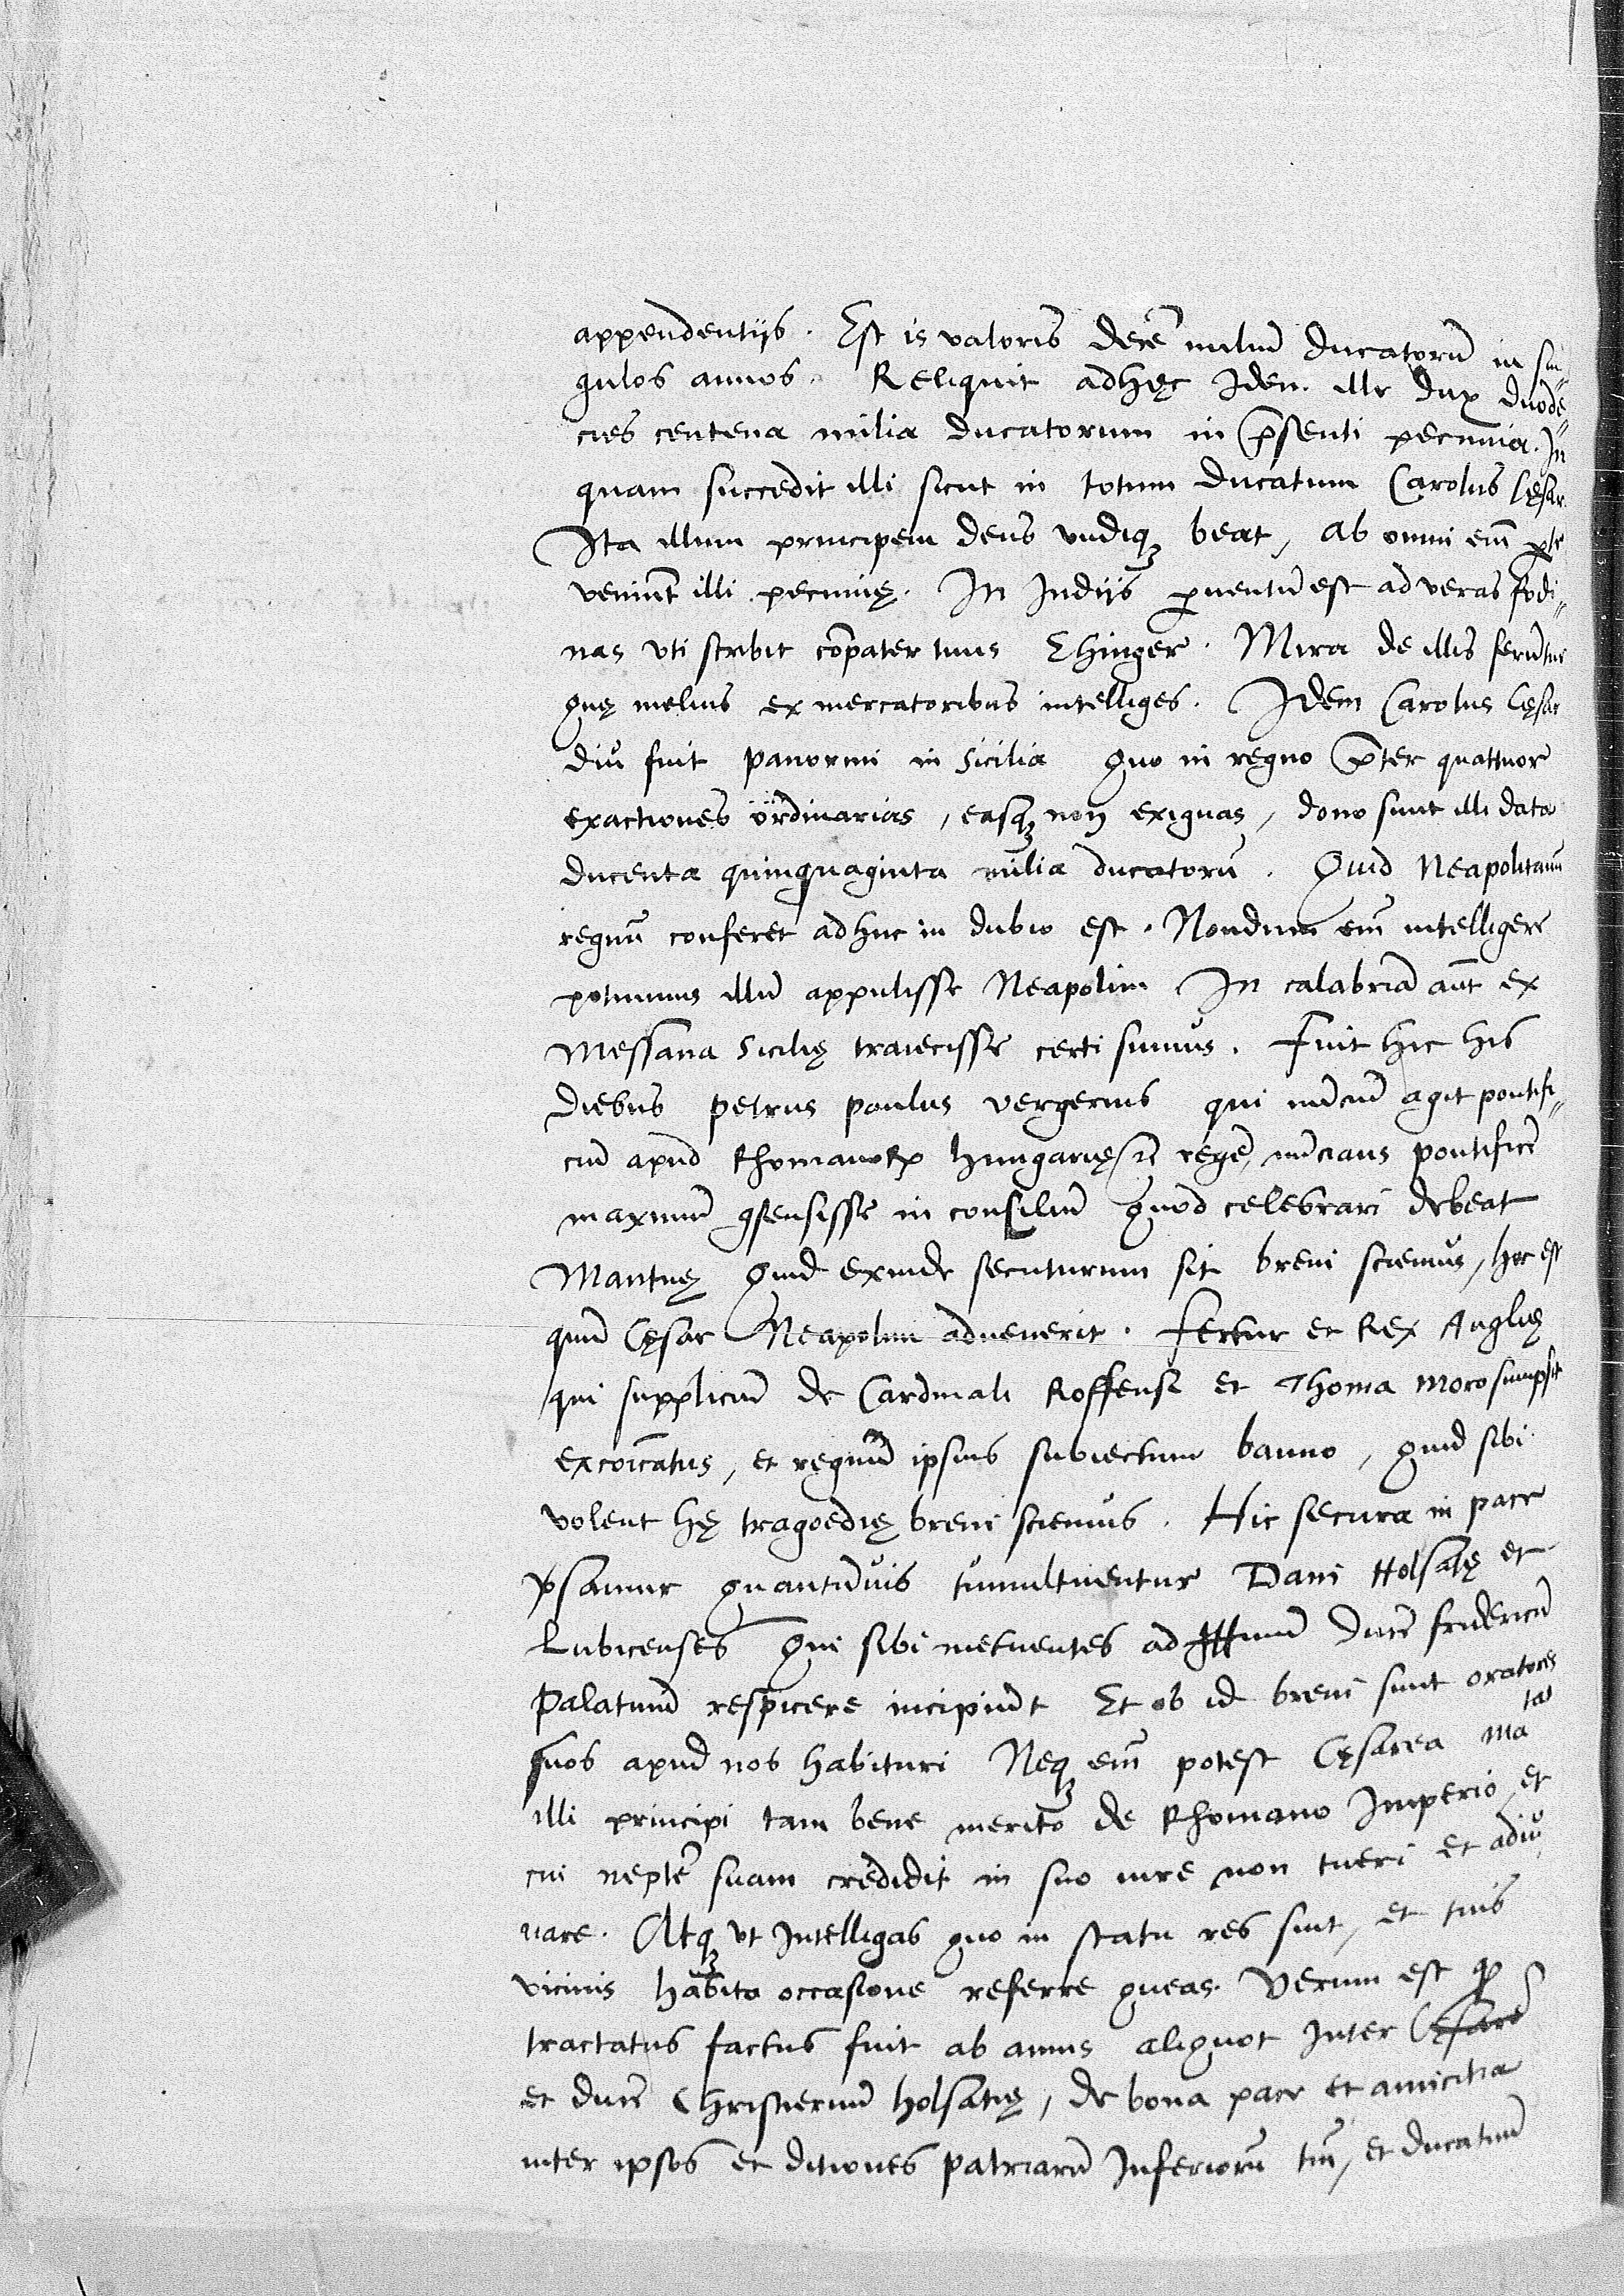 appendentijs. Est is valoris decē miliū ducatorū in sin⸗
gulos annos. Reliquit adhęc Idem ille dux duode⸗
cies centena milia ducatorum in p̄senti pecunia. In
quam succedit illi sicut in totum ducatum Carolus Cęsar.
Ita illum principem deus vndiqꝫ beat, ab omni em̄ ꝑte
veniūt illi pecunię. In Indijs ꝑuentū est ad veras fodi⸗
nas vti scribit cōpater tuus Ehinger. Mira de illis ferūtur
quę melius ex mercatoribus intelliges. Idem Carolus Cęsar
diu fuit panormi in Sicilia quo in regno p̄ter quattuor
exactiones ordinarias, easqꝫ non exiguas, dono sunt illi data
ducenta quinquaginta milia ducatorū. Quid Neapolitanū
regnū conferet adhuc in dubio est. Nondum em̄ intelligere
potuimus illū appulisse Neapolim In calabriā aūt ex
Messana Sicilię traiecisse certi sumus. Fuit hic his
diebus petrus paulus vergerius qui nūciū agit pontifi⸗
ciū apud Rhomanoꝝ hungarięqꝫ regē, nūcians pontificē
maximū ꝯsensisse in consiliū quod celebrari debeat
Mantuę Quid exinde secuturum sit breui sciemus, hoc est
quū Cęsar Neapolim aduenerit. Fertur et Rex Anglię
qui suppliciū de Cardinali Roffense et Thoma moro sumpsit
excoīcatus, et regnū ipsius subiectum banno, quid sibi
volent hę tragoedię breui sciemus. Hic secura in pace
v̄samur quantūuis tumultuentur Dani Holsatę et
Lubicenses Qui sibi metuentes ad Illmū ducē fridericū
Palatinū respicere incipiūt Et ob id breui sunt oratores
suos apud nos habituri Neqꝫ em̄ potest Cęsarea Matas
illi principi tam bene merito de Rhomano Imperio, et
cui neptē suam credidit in suo iure non tueri et adiu⸗
uare. Atqꝫ vt Intelligas quo in statu res sint, et tuis
vicinis habita occasione referre queas. Verum est ꝙ
tractatus factus fuit ab annis aliquot Inter Cęsarē
et ducē Christiernū holsatię, de bona pace et amicitia
inter ipsos et ditiones patriarū Inferiorū tm̄, et ducatuū